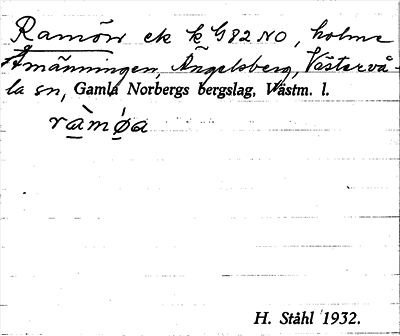 Ramön ek k G82 NO, holme
Åmänningen, Ängelsberg, Västervå-
la sn, Gamla Norbergs bergslag, Västm. l.
ràmǿa
H. Ståhl 1932.